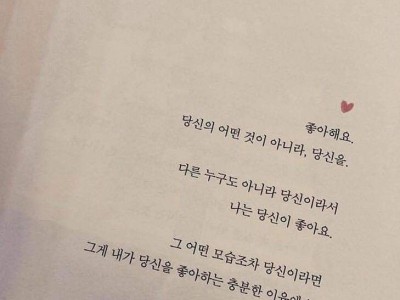 좋아해요.
당신의 어떤 것이 아니라, 당신을.
다른 누구도 아니라 당신이라서
나는 당신이 좋아요.
그 어떤 모습조차 당신이라면
그게 내가 당신을 좋아하는 충분한